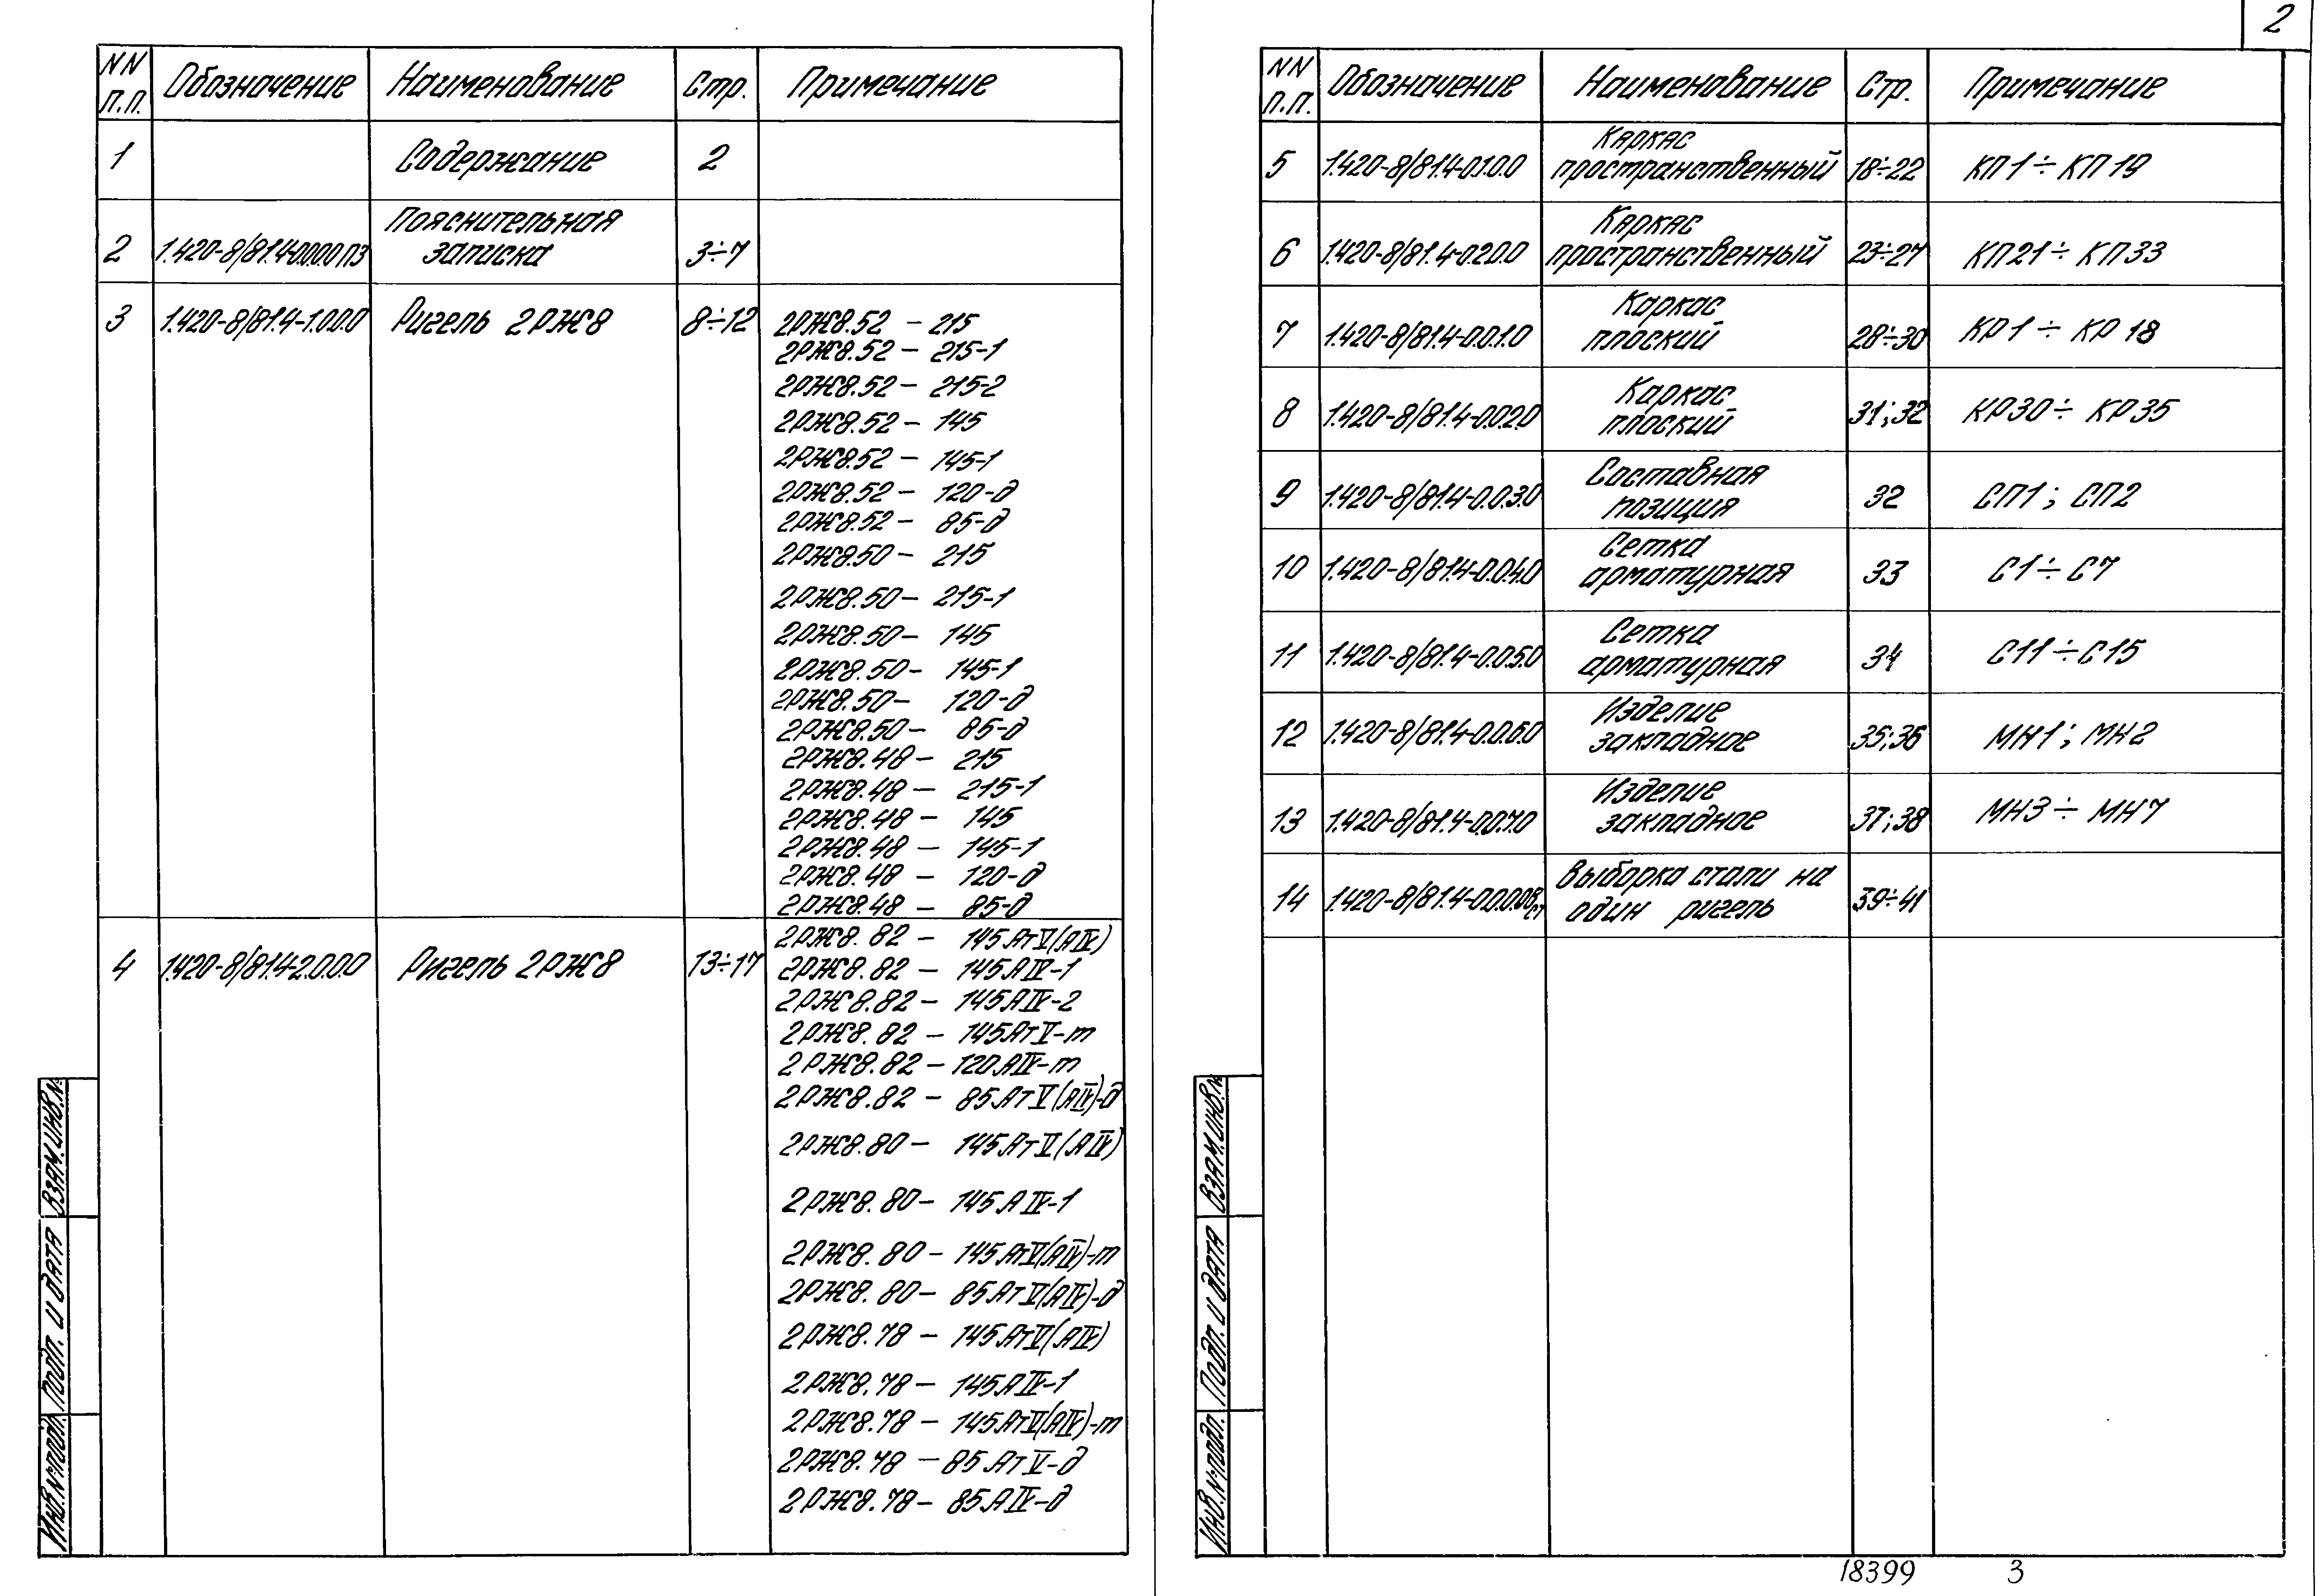 2
NN п.п. Обозначение Наименование Стр. Примечание
1 Содержание 2
2 1.420-8/81.4-0.0.0.0 ПЗ Пояснительная записка 3÷7
3 1.420-8/81.4-1.0.0.0 Ригель 2РЖ8 8÷12 2РЖ8.52 – 215
2РЖ8.52 – 215-1
2РЖ8.52 – 215-2
2РЖ8.52 – 145
2РЖ8.52 – 145-1
2РЖ8.52 – 120-д
2РЖ8.52 – 85-д
2РЖ8.50 – 215
2РЖ8.50 – 215-1
2РЖ8.50 – 145
2РЖ8.50 – 145-1
2РЖ8.50 – 120-д
2РЖ8.50 – 85-д
2РЖ8.48 – 215
2РЖ8.48 – 215-1
2РЖ8.48 – 145
2РЖ8.48 – 145-1
2РЖ8.48 – 120-д
2РЖ8.48 – 85-д
4 1.420-8/81.4-2.0.0.0 Ригель 2РЖ8 13÷17 2РЖ8.82 – 145АтV(АIV)
2РЖ8.82 – 145АIV-1
2РЖ8.82 – 145АIV-2
2РЖ8.82 – 145АтV-т
2РЖ8.82 – 120АIV-т
2РЖ8.82 – 85АтV(АIV)-д
2РЖ8.80 – 145АтV(АIV)
2РЖ8.80 – 145АIV-1
2РЖ8.80 – 145АтV(АIV)-т
2РЖ8.80 – 85АтV(АIV)-д
2РЖ8.78 – 145АтV(АIV)
2РЖ8.78 – 145АIV-1
2РЖ8.78 – 145АтV(АIV)-т
2РЖ8.78 – 85АтV-д
2РЖ8.78 – 85АIV-д
Взам.инв.№
Подп. и дата
Инв.№подл.
NN п.п. Обозначение Наименование Стр. Примечание
5 1.420-8/81.4-0.1.0.0 Каркас пространственный 18÷22 КП1÷КП19
6 1.420-8/81.4-0.2.0.0 Каркас пространственный 23÷27 КП21÷КП33
7 1.420-8/81.4-0.0.1.0 Каркас плоский 28÷30 КР1÷КР18
8 1.420-8/81.4-0.0.2.0 Каркас плоский 31;32 КР30÷КР35
9 1.420-8/81.4-0.0.3.0 Составная позиция 32 СП1; СП2
10 1.420-8/81.4-0.0.4.0 Сетка арматурная 33 С1÷С7
11 1.420-8/81.4-0.0.5.0 Сетка арматурная 34 С11÷С15
12 1.420-8/81.4-0.0.6.0 Изделие закладное 35;36 МН1; МН2
13 1.420-8/81.4-0.0.7.0 Изделие закладное 37;38 МН3÷МН7
14 1.420-8/81.4-0.0.0.0Вст Выборка стали на один ригель 39÷41
Взам.инв.№
Подп. и дата
Инв.№подл.
18399 3